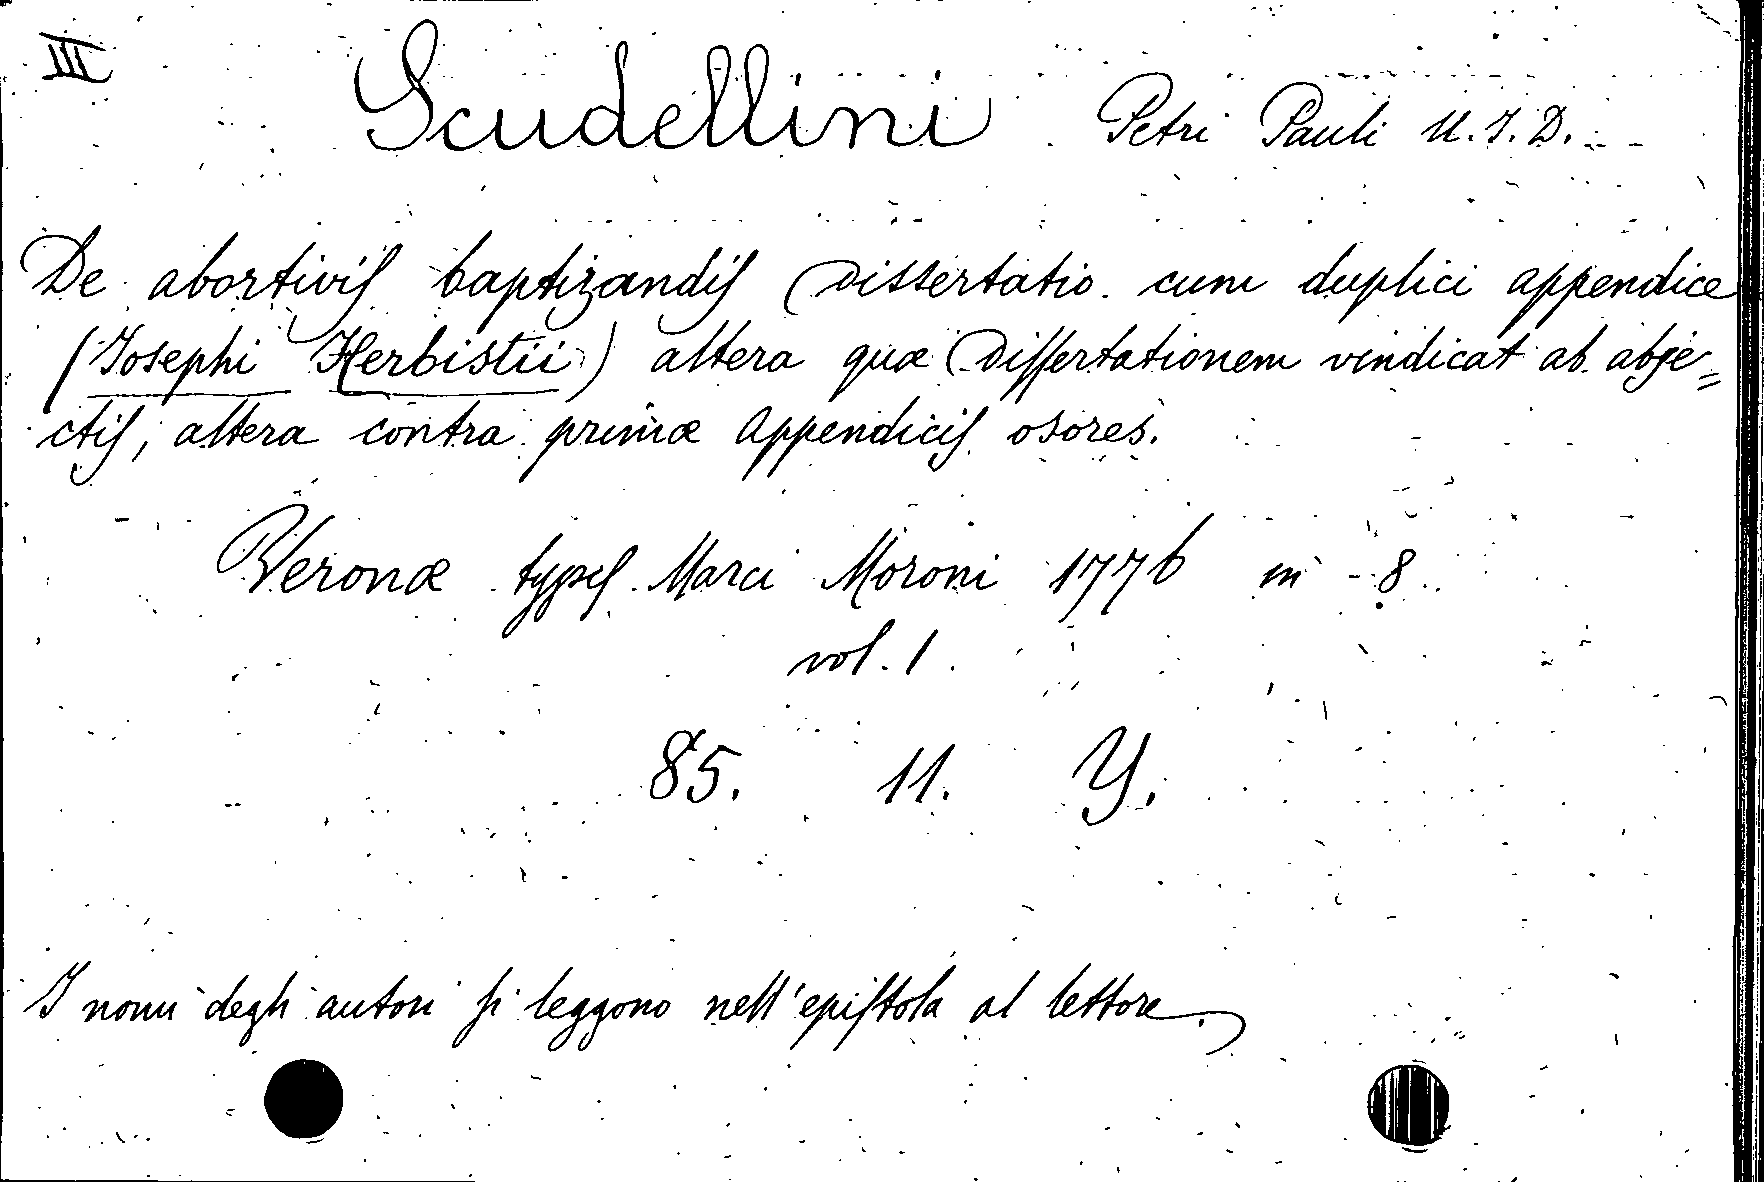 III
Scudellini Petri Pauli U.J.D.
De abortivis baptizandis Dissertatio cum duplici appendice
(Josephi Herbistii) altera quæ Dissertationem vindicat ab abje=
ctis, altera contra primæ Appendicis osores.
Veronæ typis Marci Moroni 1776 in-8
vol. 1.
85. 11. Y.
I nomi degli autori si leggono nell'epistola al lettore.